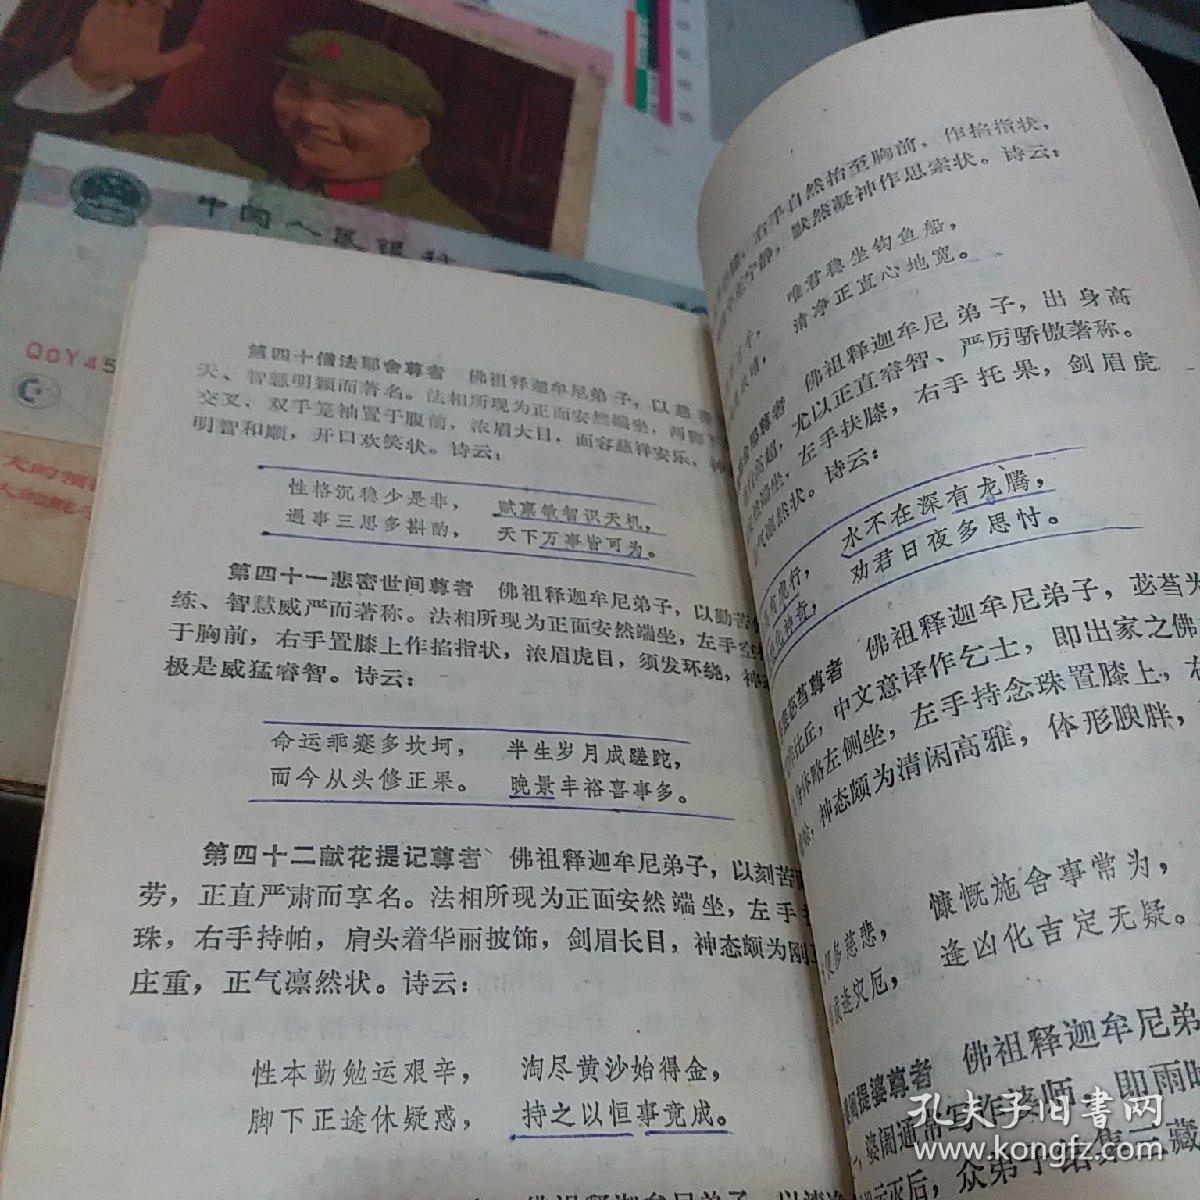 中国人民银行
QOY45
第四十僧法耶舍尊者　佛祖释迦牟尼弟子，以慈善
天、智慧明颖而著名。法相所现为正面安然端坐，两脚
交叉，双手笼袖置于腹前，浓眉大目，面容慈祥安乐，神
明智和顺，开口欢笑状。诗云：
性格沉稳少是非，　赋禀敏智识天机，
遇事三思多斟酌，　天下万事皆可为。
第四十一悲密世间尊者　佛祖释迦牟尼弟子，以勤苦
练、智慧威严而著称。法相所现为正面安然端坐，左手
于胸前，右手置膝上作掐指状，浓眉虎目，须发环绕，神
极是威猛睿智。诗云：
命运乖蹇多坎坷，　半生岁月成蹉跎，
而今从头修正果。　晚景丰裕喜事多。
第四十二献花提记尊者　佛祖释迦牟尼弟子，以刻苦
劳，正直严肃而享名。法相所现为正面安然端坐，左手
珠，右手持帕，肩头着华丽披饰，剑眉长目，神态颇为刚
庄重，正气凛然状。诗云：
性本勤勉运艰辛，　淘尽黄沙始得金，
脚下正途休疑惑，　持之以恒事竟成。
右手自然抬至胸前，作掐指状，
默然凝神作思索状。诗云：
唯君稳坐钓鱼船，
清净正直心地宽。
尊者　佛祖释迦牟尼弟子，出身高
尤以正直睿智、严厉骄傲著称。
端坐，左手扶膝，右手托果，剑眉虎
气凛然状。诗云：
水不在深有龙腾，
劝君日夜多思忖。
苾芻尊者　佛祖释迦牟尼弟子，苾芻为
比丘，中文意译作乞士，即出家之佛
身体略左侧坐，左手持念珠置膝上，右
神态颇为清闲高雅，体形腴胖，
多慈悲，　慷慨施舍事常为，
逢灾厄，　逢凶化吉定无疑。
提婆尊者　佛祖释迦牟尼弟
婆阇通常写作婆师，即雨时
示灭后，众弟子结集三藏
孔夫子旧书网
www.kongfz.com